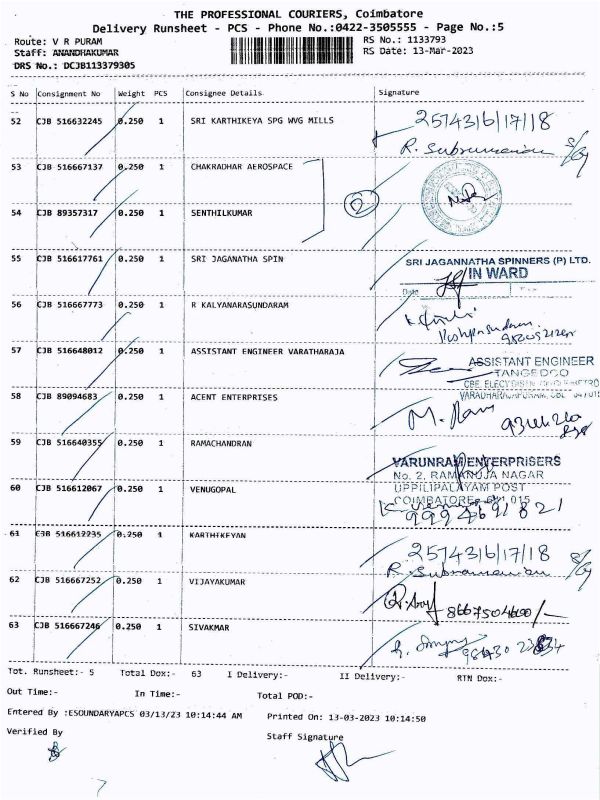 THE PROFESSIONAL COURIERS, Coimbatore
Delivery Runsheet - PCS - Phone No.:0422-3505555 - Page No.:5
Route: V R PURAM
RS No.: 1133793
Staff: ANANDHAKUMAR
RS Date: 13-Mar-2023
DRS No.: DCJB113379305
S No Consignment No Weight PCS Consignee Details Signature
52 CJB 516632245 0.250 1 SRI KARTHIKEYA SPG WVG MILLS 25743/6/17/18
R. Subramanian
53 CJB 516667137 0.250 1 CHAKRADHAR AEROSPACE
2
54 CJB 89357317 0.250 1 SENTHILKUMAR
55 CJB 516617761 0.250 1 SRI JAGANATHA SPIN SRI JAGANNATHA SPINNERS (P) LTD.
IN WARD
Date
56 CJB 516667773 0.250 1 R KALYANARASUNDARAM
57 CJB 516648012 0.250 1 ASSISTANT ENGINEER VARATHARAJA ASSISTANT ENGINEER
TANGEDCO
58 CJB 89094683 0.250 1 ACENT ENTERPRISES
59 CJB 516640355 0.250 1 RAMACHANDRAN
VARUNRAM ENTERPRISERS
No. 2, RAMANUJA NAGAR
60 CJB 516612067 0.250 1 VENUGOPAL UPPILIPALAYAM POST
COIMBATORE - 641 015
9994691821
61 CJB 516612235 0.250 1 KARTHIKEYAN 25743/6/17/18
R. Subramanian
62 CJB 516667252 0.250 1 VIJAYAKUMAR
63 CJB 516667246 0.250 1 SIVAKMAR
Tot. Runsheet:- 5 Total Dox:- 63 I Delivery:- II Delivery:- RTN Dox:-
Out Time:- In Time:- Total POD:-
Entered By :ESOUNDARYAPCS 03/13/23 10:14:44 AM Printed On: 13-03-2023 10:14:50
Verified By
Staff Signature